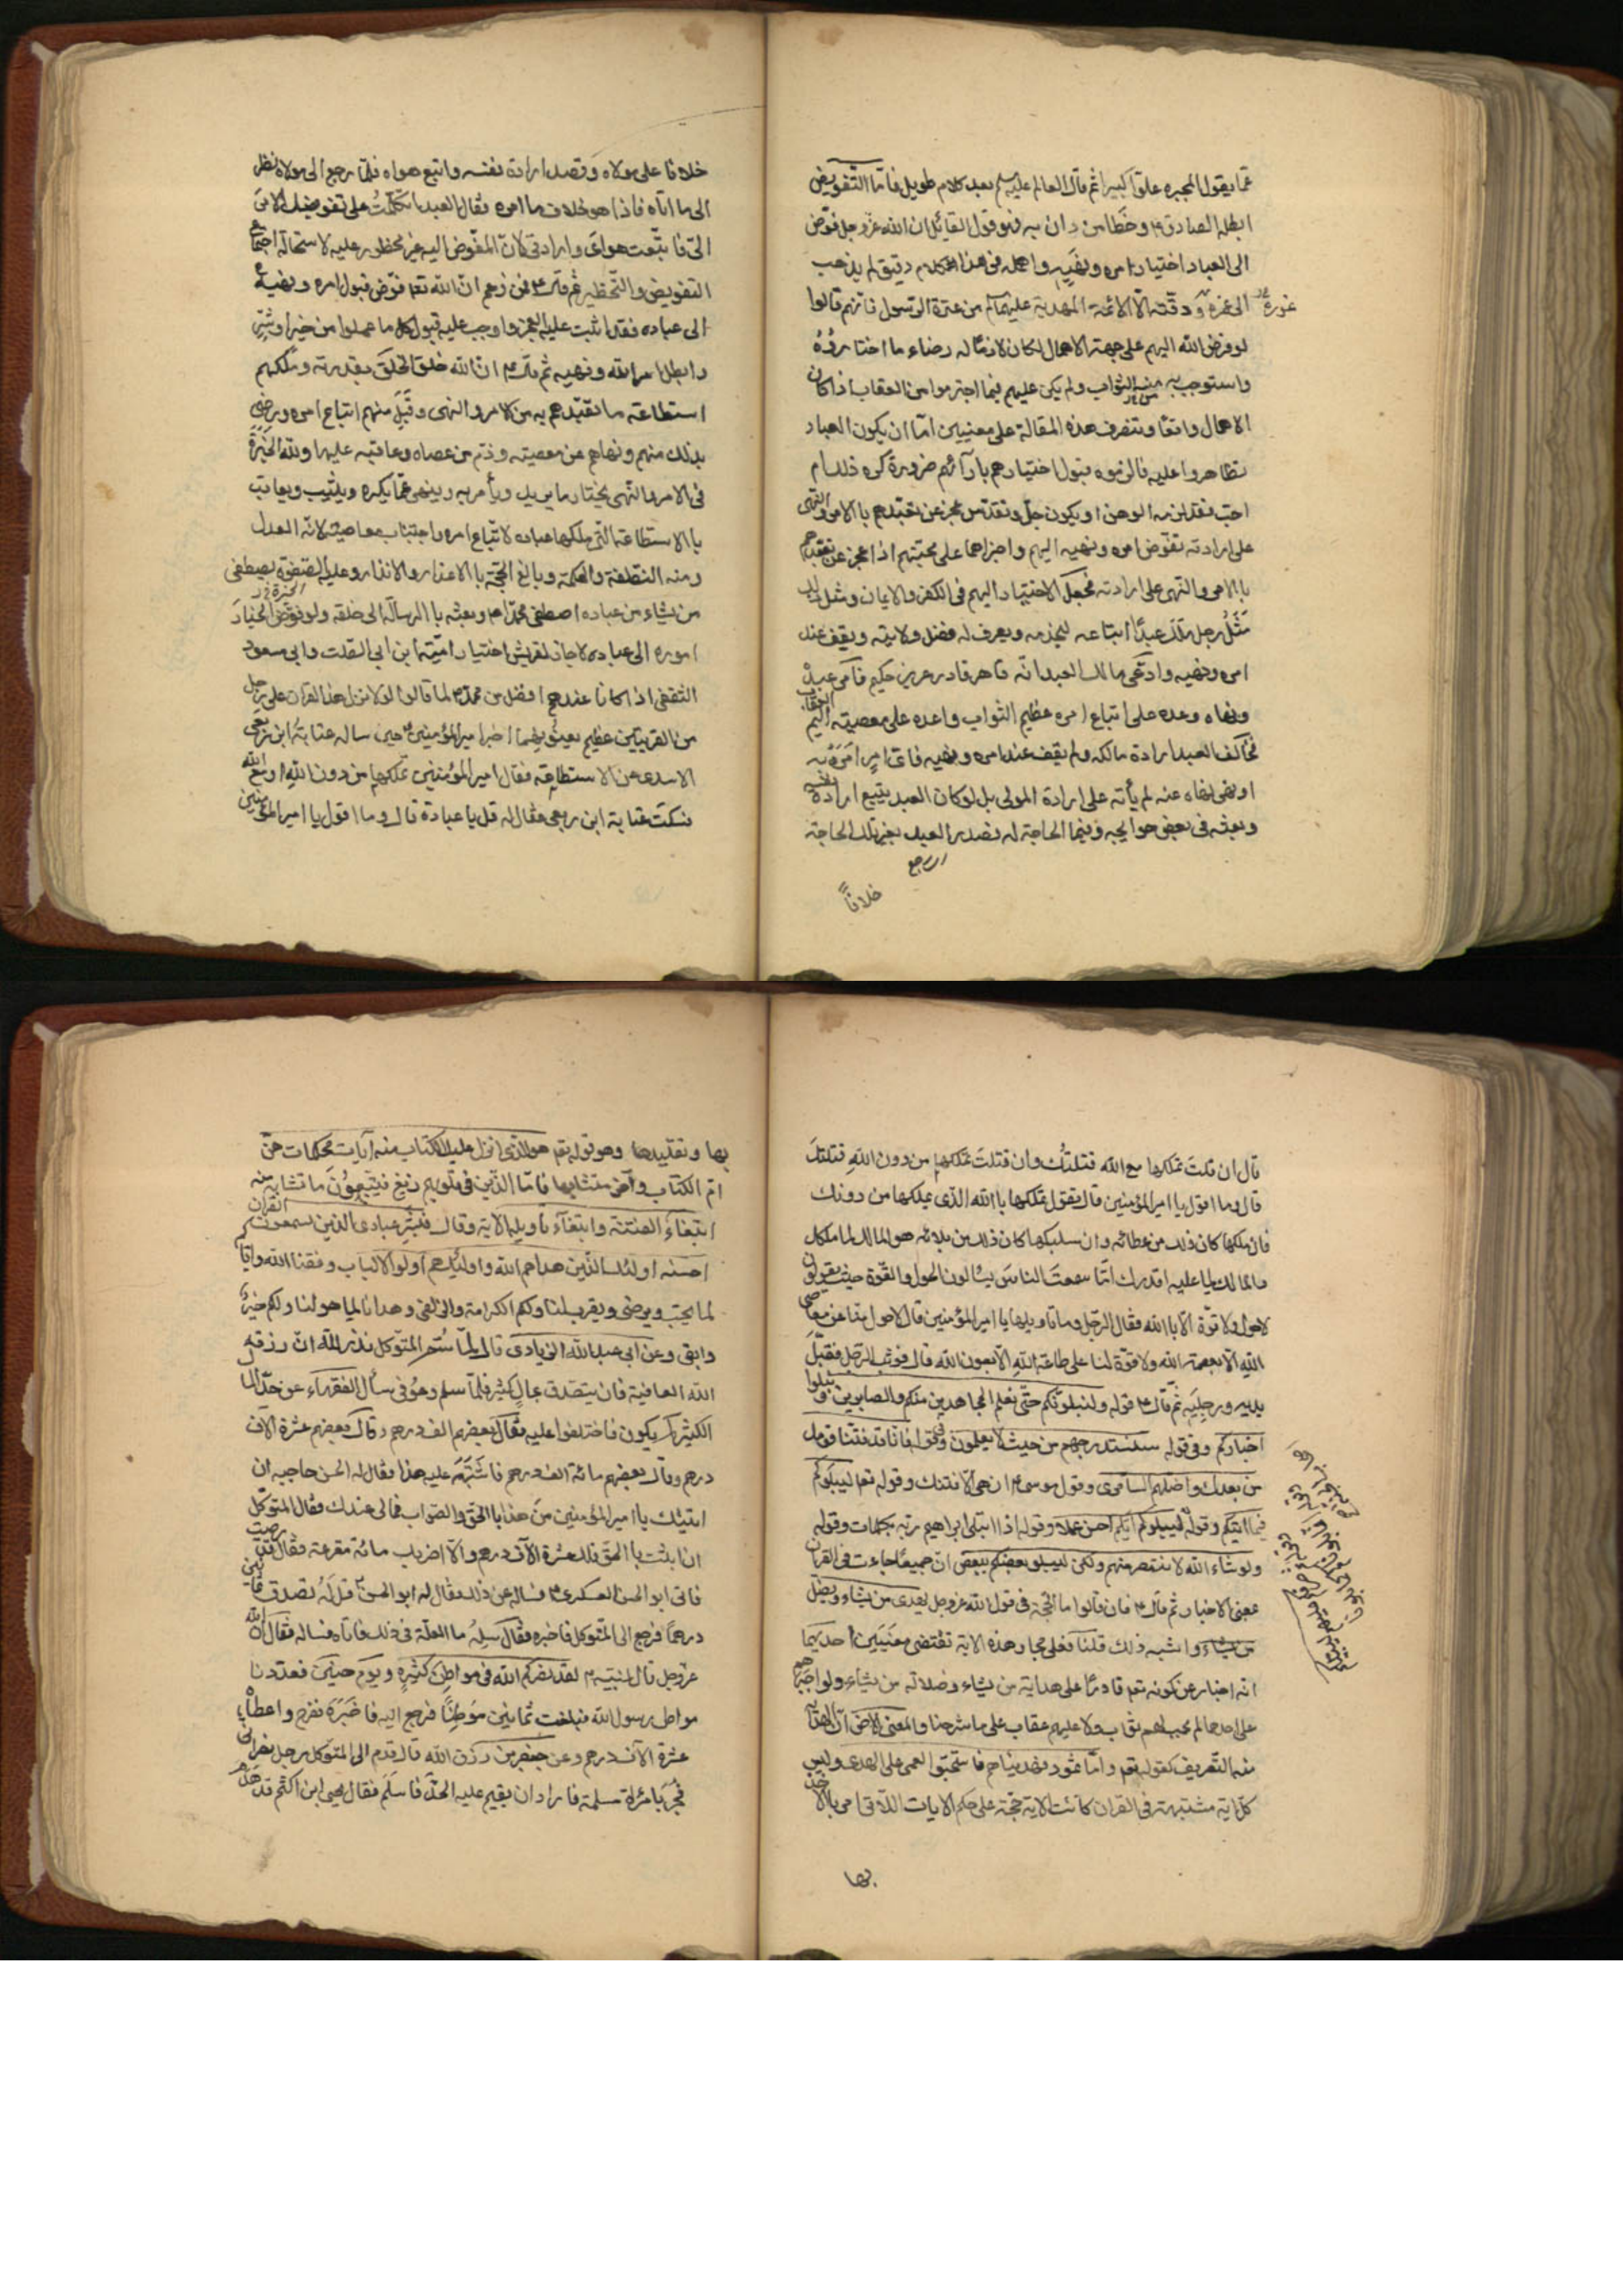 عما يقول المجبره علوا كبيرا ثم قال العالم عليه السلم بعد كلام طويل فاما التفويض
ابطله الصادق ع وخطا من دان به فهو قول القائل ان الله عز وجل فوض
الى العباد اختيار امره ونهيه واهملهم فى هذا الكلام دقيق لم يذهب
الى غوره ودقته الا الائمة المهدية عليهم السلم من عترة الرسول فانهم قالوا
غوره
لو فوض الله اليهم على جهة الاهمال لكان لازما له رضاء ما اختاروه
واستوجب به منه الثواب ولم يكن عليهم فيما اجترموا من العقاب اذا كان
الاهمال واقعا وتنصرف هذه المقالة على معنيين اما ان يكون العباد
تظاهروا عليه فالزموه قبول اختيارهم بارآئهم ضرورة كره ذلك ام
احب فقد لزمه الوهن او يكون جل وتقدس عجز عن تعبدهم بالامر والنهى
على ارادته ففوض امره ونهيه اليهم واجراهما على محبتهم اذا عجز عن تعبدهم
بالامر والنهى على ارادته فجعل الاختيار اليهم فى الكفر والايمان ومثل ذلك
مثل رجل ملك عبدا ابتاعه ليخدمه ويعرف له فضل ولايته ويقف عند
امره ونهيه وادعى مالك العبد انه قاهر قادر عزيز حكيم فامر عبده
ونهاه ووعده على اتباع امره عظيم الثواب واعده على معصيته اليم العقاب
فخالف العبد ارادة مالكه ولم يقف عند امره ونهيه فاى امر امره به
او نهى نهاه عنه لم يأته على ارادة المولى بل لو كان العبد يتبع ارادة نفسه
وبعثه فى بعض حوايجه وفيما الحاجة له فصدر العبد بغير تلك الحاجة
خلافا
خلافا على مولاه وقصد ارادة نفسه واتبع هواه فلما رجع الى مولاه نظر
الى ما اتاه فاذا هو خلاف ما امره فقال العبد اتكلت على تفويضك الامر
الى فاتبعت هواى وارادتى لان المفوض اليه غير محظور عليه لاستحالة اجتماع
التفويض والتحظير ثم قال ع فمن زعم ان الله تعا فوض قبول امره ونهيه
الى عباده فقد اثبت عليه العجز واوجب عليه قبول كل ما عملوا من خير او شر
وابطل امر الله ونهيه ثم قال ع ان الله خلق الخلق بقدرته وملكهم
استطاعة ما تعبدهم به من الامر والنهى وقبل منهم اتباع امره ورضى
بذلك منهم ونهاهم عن معصيته وذم من عصاه وعاقبه عليها ولله الخيرة
فى الامر والنهى يختار ما يريد ويأمر به وينهى عما يكره ويثيب ويعاقب
بالاستطاعة التى ملكها عباده لاتباع امره واجتناب معاصيه لانه العدل
ومنه النصفة والحكمة وبالغ الحجة بالاعذار والانذار وعليه الصفوة يصطفى
من يشاء من عباده اصطفى محمدا ص وبعثه بالرسالة الى خلقه ولو فوض اختيار
اموره الى عباده لاجاز لقريش اختيار امية ابن ابى الصلت وابى مسعود
الثقفى اذا كانا عندهم افضل من محمد ص لما قالوا لولا نزل هذا القران على رجل
من القريتين عظيم يعنونهما اخبر امير المؤمنين ع حين ساله عتابة ابن ربعى
الاسدى عن الاستطاعة فقال امير المؤمنين تملكها من دون الله او مع الله
فسكت عتابة ابن ربعى فقال له قل يا عبادة قال وما اقول يا امير المؤمنين
قال ان قلت تملكها مع الله قتلتك وان قلت تملكها من دون الله قتلتك
قال وما اقول يا امير المؤمنين قال تقول تملكها بالله الذى يملكها من دونك
فان ملكها كان ذلك من عطائه وان سلبكها كان ذلك من بلائه هو المالك لما ملكك
والمالك لما عليه اقدرك اما سمعت الناس يسألون الحول والقوة حيث يقولون
لا حول ولا قوة الا بالله فقال الرجل وما تاويلها يا امير المؤمنين قال لا حول منا عن معاصى
الله الا بعصمة الله ولا قوة لنا على طاعة الله الا بعون الله قال فوثب الرجل فقبل
يديه ورجليه ثم قال ع قوله ولنبلونكم حتى نعلم المجاهدين منكم والصابرين ونبلوا
اخباركم وفى قوله سنستدرجهم من حيث لا يعلمون وفى قوله فانا قد فتنا قومك
من بعدك واضلهم السامرى وقول موسى ع ان هى الا فتنتك وقوله تعا ليبلوكم
فيما اتيكم وقوله ليبلوكم ايكم احسن عملا وقوله اذا ابتلى ابراهيم ربه بكلمات وقوله
ولو شاء الله لانتصر منهم ولكن ليبلو بعضكم ببعض ان جميعها جاءت فى القران
بمعنى الاختبار ثم قال ع فان قالوا ما الحجة فى قول الله عز وجل يهدى من يشاء ويضل
من يشاء وما اشبه ذلك قلنا فعلى مجاز هذه الاية تقتضى معنيين احديهما
انه اخبار عن كونه تعا قادرا على هداية من يشاء وضلالة من يشاء ولو اجبرهم
على احدهما لم يجب لهم ثواب ولا عليهم عقاب على ما شرحنا والمعنى الاخر ان الهداية
منه التعريف كقوله تعا واما ثمود فهديناهم فاستحبوا العمى على الهدى وليس
كل اية مشتبهة فى القران كانت الاية حجة على حكم الايات اللاتى امر بالاخذ
بها
بها وتقليدها وهو قوله تعا هو الذى انزل عليك الكتاب منه آيات محكمات هن
ام الكتاب واخر متشابهات فاما الذين فى قلوبهم زيغ فيتبعون ما تشابه منه
ابتغاء الفتنة وابتغآء تأويله الاية وقال فبشر عبادى الذين يستمعون القول فيتبعون
احسنه اولئك الذين هداهم الله واولئك هم اولوا الالباب وفقنا الله واياكم
لما يحب ويرضى ويقرب لنا ولكم الكرامة والزلفى وهدانا لما هو لنا ولكم خير
وابقى وعن ابى عبد الله الزيادى قال لما سم المتوكل نذر لله ان رزقه
الله العافية فان يتصدق بمال كثير فلما سلم وعوفى سأل الفقهاء عن حد المال
الكثير كم يكون فاختلفوا عليه فقال بعضهم الف درهم وقال بعضهم عشرة الاف
درهم وقال بعضهم مائة الف درهم فاشتبه عليه هذا فقال له الحسن حاجبه ان
اتيتك يا امير المؤمنين من هذا بالحق والصواب فمالى عندك فقال المتوكل
ان اتيت بالحق فلك عشرة الاف درهم والا اضربك مائة مقرعة فقال قد رضيت
فاتى ابو الحسن العسكرى ع فساله عن ذلك فقال له ابو الحسن ع قل له تصدق ثمانين
درهما فرجع الى المتوكل فاخبره فقال سله ما العلة فى ذلك فاتاه فساله فقال ان الله
عز وجل قال لنبيه ص لقد نصركم الله فى مواطن كثيرة ويوم حنين فعددنا
مواطن رسول الله فبلغت ثمانين موطنا فرجع اليه فاخبره ففرح واعطاه
عشرة الاف درهم وعن جعفر بن رزق الله قال قدم الى المتوكل رجل نصرانى
فجر بامرأة مسلمة فاراد ان يقيم عليه الحد فاسلم فقال يحيى ابن اكثم قد هدم